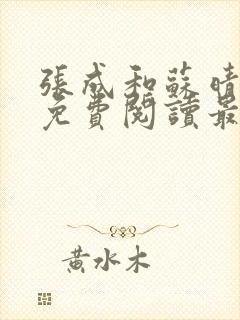 張成和蘇晴
免費閱讀最
黃水木